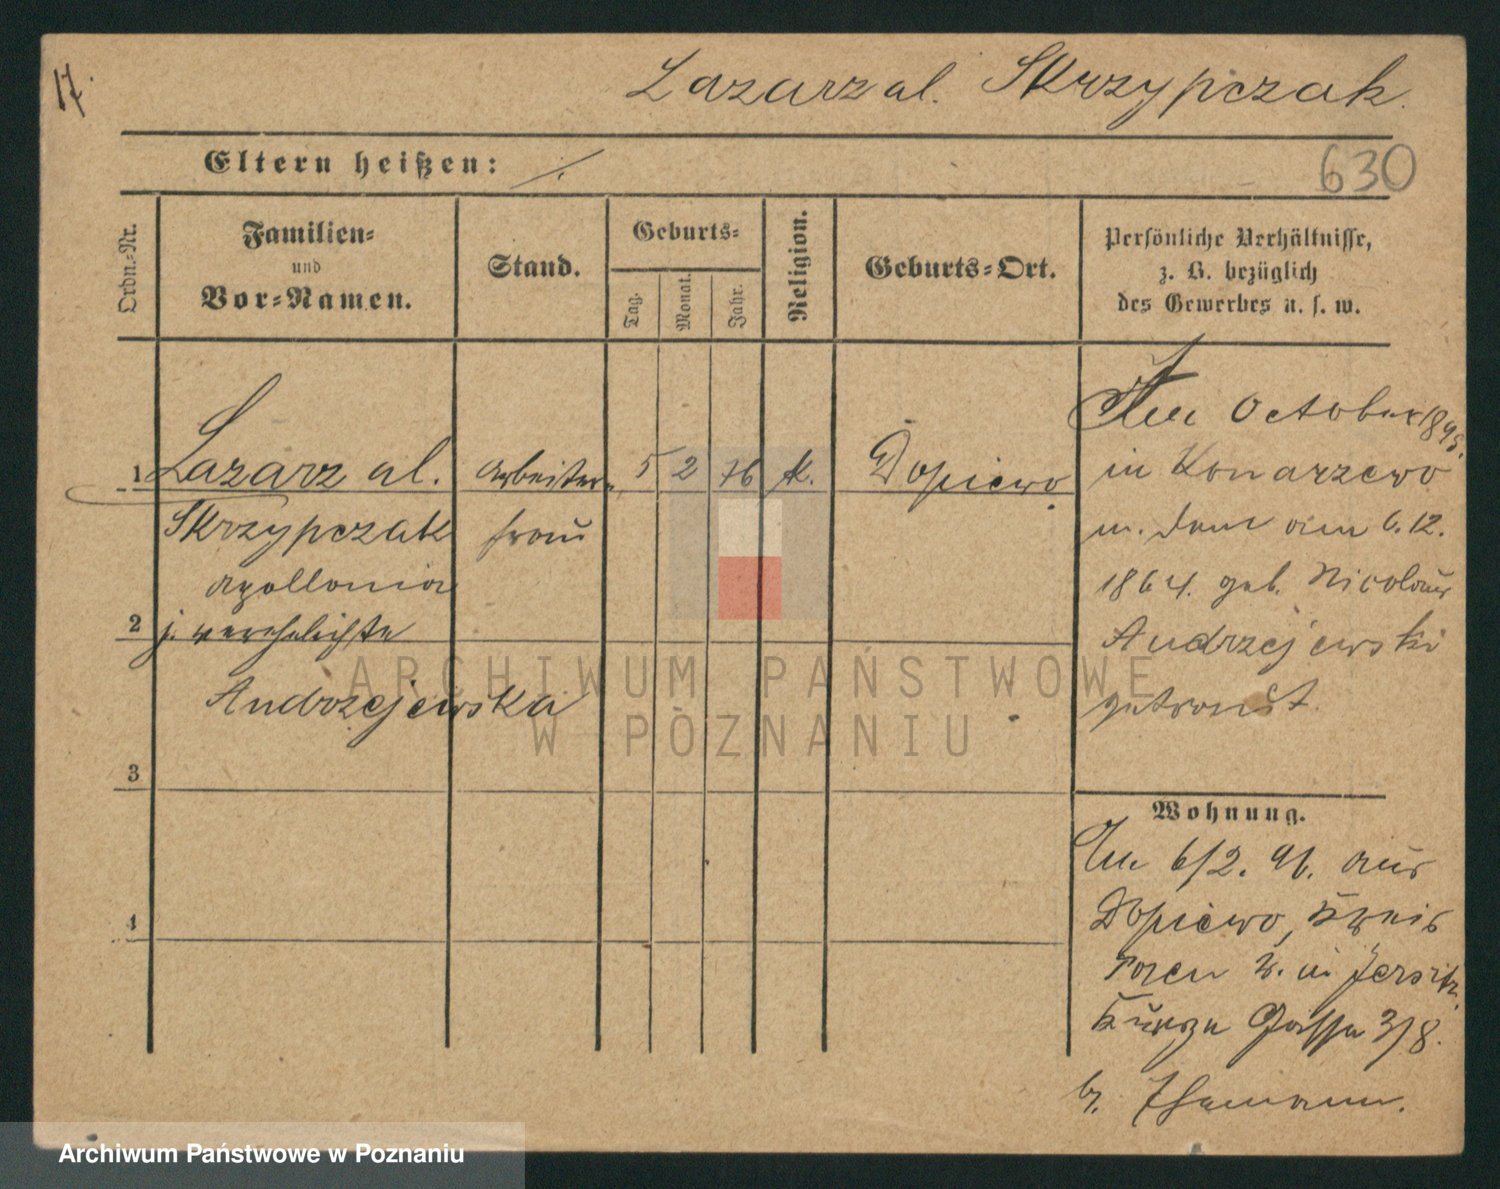 17.
Lazarz al. Skrzypczak.
Eltern heißen: ./.
630
Ordn.-Nr.
Familien-
und
Vor-Namen.
Stand.
Geburts-
Tag.
Monat.
Jahr.
Religion.
Geburts-Ort.
Persönliche Verhältnisse,
z. B. bezüglich
des Gewerbes u. s. w.
1 Lazarz al. Arbeiter- 5 2 76 k. Dopiewo
Skrzypczak frau
Apollonia
2 j. verehelichte
Andrzejewska
3
4
Im October 1895.
in Konarzewo
m. dem am 6.12.
1864. geb. Nicolaus
Andrzejewski
getraut.
Wohnung.
Am 6/2. 96. aus
Dopiewo, Kreis
Posen W. in Jersitz.
Kurze Gasse 3/8.
b.
ARCHIWUM PAŃSTWOWE
W POZNANIU
Archiwum Państwowe w Poznaniu